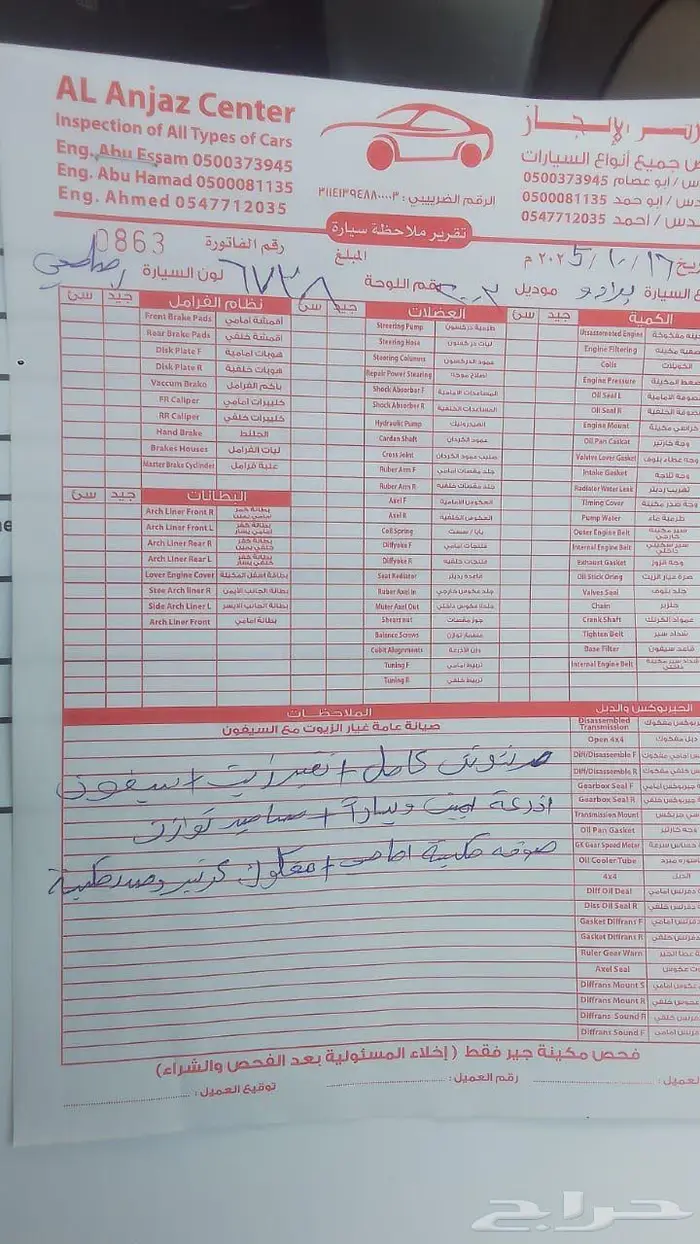 AL Anjaz Center
Inspection of All Types of Cars
Eng. Abu Essam 0500373945
Eng. Abu Hamad 0500081135
Eng. Ahmed 0547712035
جميع أنواع السيارات
أبو عصام 0500373945
أبو حمد 0500081135
احمد 0547712035
الرقم الضريبي : ٣١١٤١٣٩٤٨٨٠٠٠٠٣
تقرير ملاحظة سيارة
٢٠٢5/١٠/١٦ م
المبلغ
رقم الفاتورة 0863
السيارة برادو موديل
رقم اللوحة ٦٧٣٨
لون السيارة رصاصي
نظام الفرامل جيد سئ
Front Brake Pads أقمشة امامي
Rear Brake Pads أقمشة خلفي
Disk Plate F هوبات امامية
Disk Plate R هوبات خلفية
Vaccum Brake باكم الفرامل
FR Caliper كليبرات امامي
RR Caliper كليبرات خلفي
Hand Brake الجلنط
Brakes Houses ليات الفرامل
Master Brake Cyclinder علبة فرامل
البطانات جيد سئ
Arch Liner Front R بطانة كفر امامي يمين
Arch Liner Front L بطانة كفر امامي يسار
Arch Liner Rear R بطانة كفر خلفي يمين
Arch Liner Rear L بطانة كفر خلفي يسار
Lover Engine Cover بطانة اسفل المكينة
Stoe Arch liner R بطانة الجانب الايمن
Side Arch Liner L بطانة الجانب الايسر
Arch Liner Front بطانة امامي
العضلات جيد سئ
Steering Pump طرمبة دركسون
Steering Hose ليات دركسون
Steering Columns عمود الدركسون
Repair Power Stearing
Shock Absorber F المساعدات الامامية
Shock Absorber R المساعدات الخلفية
Hydraulic Pump الهيدروليك
Cardan Shaft عمود الكردان
Cross Joint صليب عمود الكردان
Ruber Arm F جلد مقصات امامي
Ruber Arm R جلد مقصات خلفيه
Axel F العكوس الامامية
Axel R العكوس الخلفية
Coil Spring
Diffyoke F
Diffyoke R
Seat Radiator قاعدة رديتر
Ruber Axel In جلد عكوس خارجي
Muter Axel Out جلدة عكوس داخلي
Shears nut جوز مقصات
Balance Screws مسمار توازن
Cubit Alugnments وزن الأذرعة
Tuning F تربيط امامي
Tuning R تربيط خلفي
المكينة جيد سئ
Disassemated Engine
Engine Filtering
Coils الكويلات
Engine Pressure ضغط المكينة
Oil Seal L
Oil Seal R
Engine Mount كراسي مكينة
Oil Pan Caskat وجه كارتير
Valvive Lover Gasket وجه غطاء بلوف
Intake Gasket وجه ثلاجة
Radiator Water Leak تهريب رديتر
Timing Cover وجه صدر مكينة
Pump Water طرمبة ماء
Outer Engine Belt سير مكينة خارجي
Internal Engine Belt
Exhaust Gasket
Oil Stick Oring صرة عيار الزيت
Valves Seal جلد بلوف
Chain جنزير
Crank Shaft عمود الكرنك
Tighten Belt شداد سير
Base Filter قاعدة سيفون
Internal Engine Belt
الجيربوكس والدبل
Disassembled Transmission
Open 4x4 دبل مفكوك
Diff/Disassemble F
Diff/Disassemble R
Gearbox Seal F
Gearbox Seal R
Transmission Mount
Oil Pan Gasket وجه كارتير
GX Gear Speed Meter حساس سرعة
Oil Cooler Tube
4x4 الدبل
Diff Oil Deal
Diss Oil Seal R
Gasket Diffrans F
Gasket Diffrans R
Ruler Gear Warn
Axel Seal
Diffrans Mount S
Diffrans Mount R
Diffrans Sound R
Diffrans Sound F
الملاحظــات
صيانة عامة غيار الزيوت مع السيفون
كامل + تغير زيت + سيفون
اذرعة يمين ويسار + مسامير توازن
صوفه مكينة امامي + مفكوك كرتير وصدر مكينة
فحص مكينة جير فقط ( إخلاء المسئولية بعد الفحص والشراء)
العميل :
رقم العميل :
توقيع العميل :
حراج